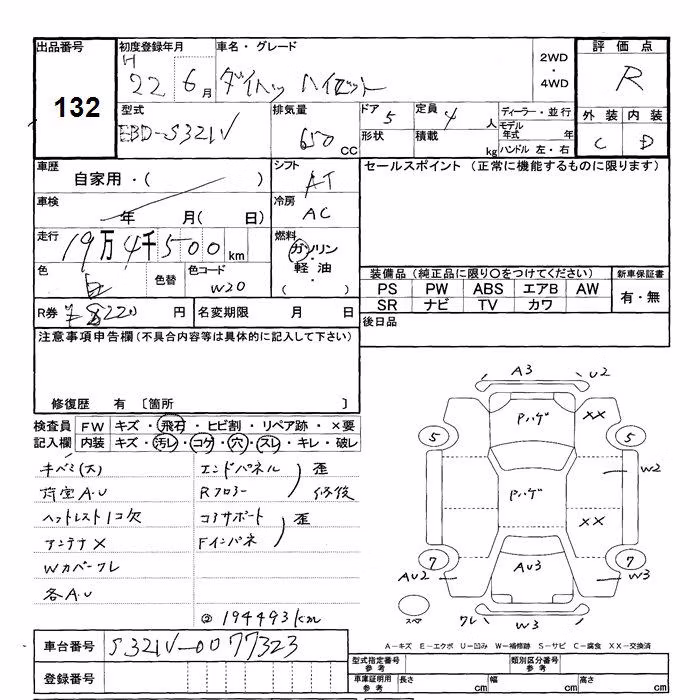 出品番号
132
初度登録年月
H 22 6月
車名・グレード
ダイハツ ハイゼット
2WD
・
4WD
評価点
R
外装 内装
C D
型式
EBD-S321V
排気量
650 CC
ドア
5
形状
定員
4 人
積載
kg
ディーラー・並行
モデル年式 年
ハンドル 左・右
車歴
自家用・( )
シフト
AT
セールスポイント (正常に機能するものに限ります)
車検
年 月( 日)
冷房
AC
走行
19万4千500km
燃料
ガソリン
軽油・
( )
色
白
色替
色コード
W20
装備品(純正品に限り○をつけてください)
PS PW ABS エアB AW
SR ナビ TV カワ
新車保証書
有・無
R券 円
名変期限 月 日
後日品
注意事項申告欄(不具合内容等は具体的に記入して下さい)
修復歴 有 〔箇所 〕
検査員記入欄
FW キズ・飛石・ヒビ割・リペア跡・×要
内装 キズ・汚レ・コゲ・穴・スレ・キレ・破レ
キベミ(大)
荷室A.U
ヘットレスト1コ欠
アンテナ×
Wカバークレ
各A.U
エンドパネル
Rフロアー
歪
修復
コアサポート
Fインパネ
歪
② 194493km
A3
U2
Pハゲ
××
5
5
W2
Pハゲ
××
7
7
AU2
AU3
W3
スペア
クレ
W3
A－キズ E－エクボ U－凹み W－補修跡 S－サビ C－腐食 XX－交換済
車台番号
S321V-0077323
登録番号
型式指定番号
参考
類別区分番号
参考
車庫証明用
参考
長さ cm
幅 cm
高さ cm